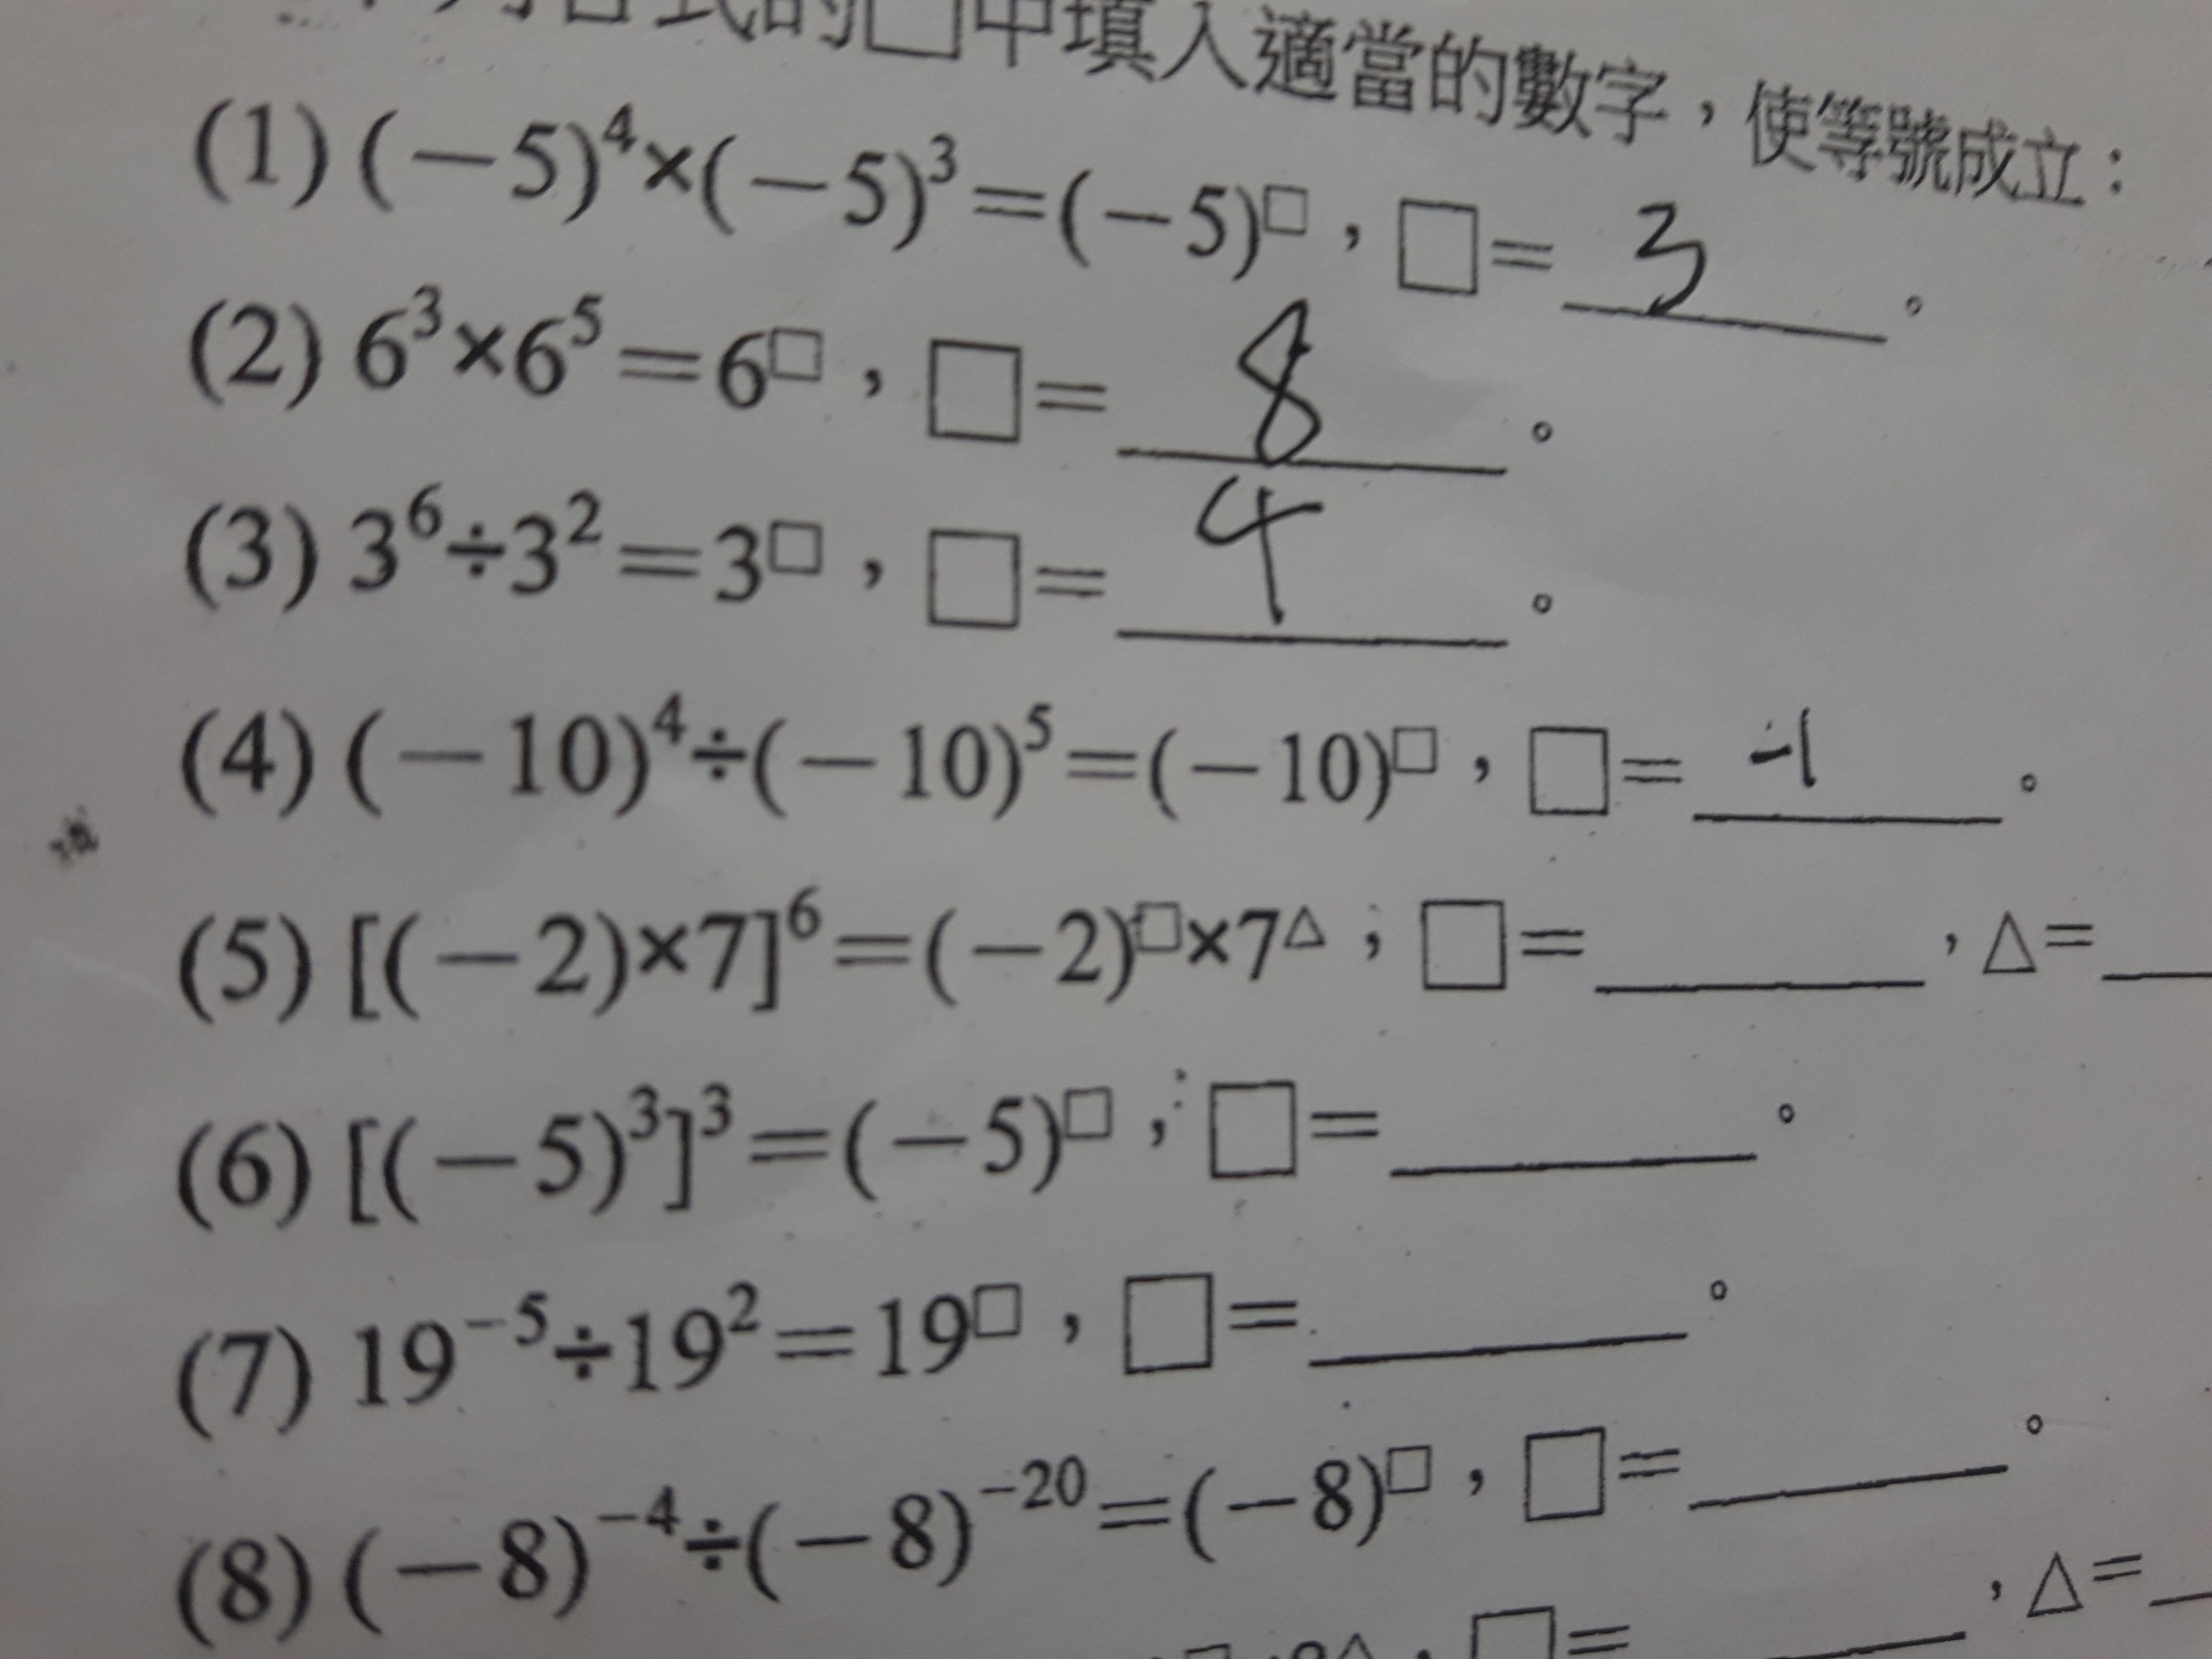 式的□中填入適當的數字，使等號成立：
(1) (－5)⁴×(－5)³＝(－5)□，□＝ 3 。
(2) 6³×6⁵＝6□，□＝ 8 。
(3) 3⁶÷3²＝3□，□＝ 4 。
(4) (－10)⁴÷(－10)⁵＝(－10)□，□＝ -1 。
(5) [(－2)×7]⁶＝(－2)□×7△；□＝____，△＝__
(6) [(－5)³]³＝(－5)□，□＝____。
(7) 19⁻⁵÷19²＝19□，□＝____。
(8) (－8)⁻⁴÷(－8)⁻²⁰＝(－8)□，□＝____。
□＝____，△＝__